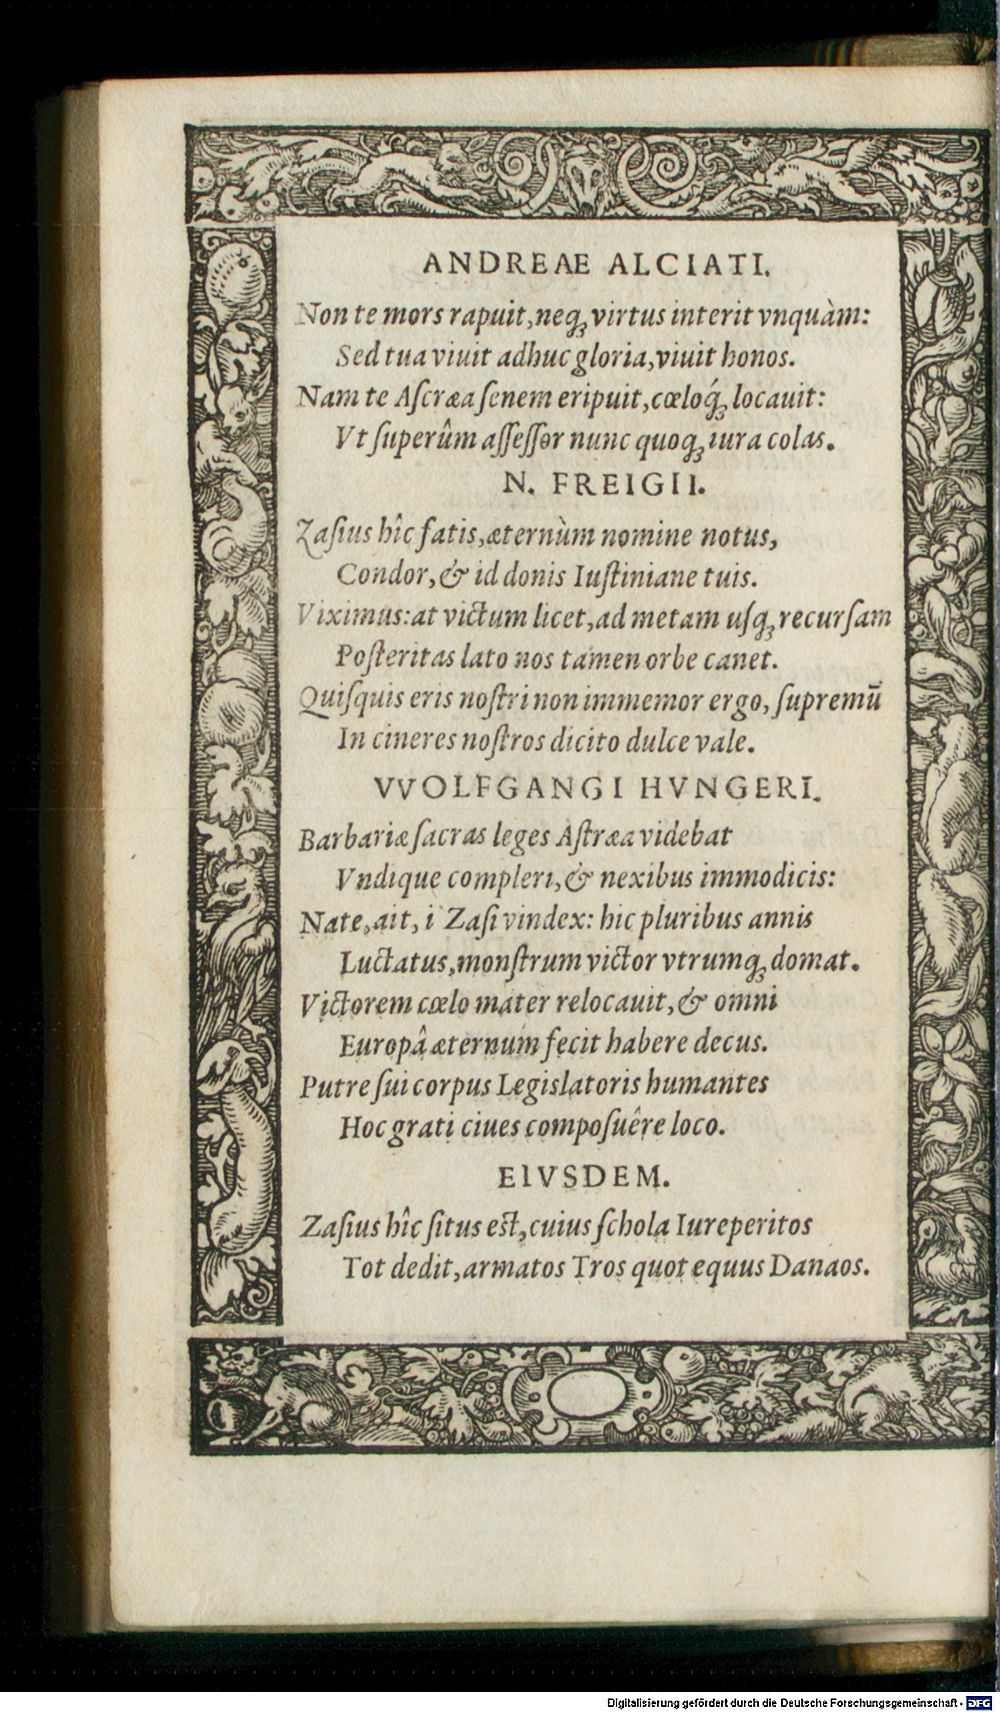 ANDREAE ALCIATI.
Non te mors rapuit, neqꝫ virtus interit vnquàm:
Sed tua viuit adhuc gloria, viuit honos.
Nam te Aſcræa ſenem eripuit, cœloq́ꝫ locauit:
Vt ſuperûm aſſeſſor nunc quoqꝫ iura colas.
N. FREIGII.
Zaſius hîc fatis, æternùm nomine notus,
Condor, & id donis Iuſtiniane tuis.
Viximus: at victum licet, ad metam uſqꝫ recurſam
Poſteritas lato nos tamen orbe canet.
Quiſquis eris noſtri non immemor ergo, ſupremū
In cineres noſtros dicito dulce vale.
VVOLFGANGI HVNGERI.
Barbariæ ſacras leges Aſtræa videbat
Vndique compleri, & nexibus immodicis:
Nate, ait, i Zaſi vindex: hic pluribus annis
Luctatus, monſtrum victor vtrumqꝫ domat.
Victorem cœlo mater relocauit, & omni
Europâ æternum fecit habere decus.
Putre ſui corpus Legislatoris humantes
Hoc grati ciues compoſuêre loco.
EIVSDEM.
Zaſius hîc ſitus eſt, cuius ſchola Iureperitos
Tot dedit, armatos Tros quot equus Danaos.
Digitalisierung gefördert durch die Deutsche Forschungsgemeinschaft - DFG